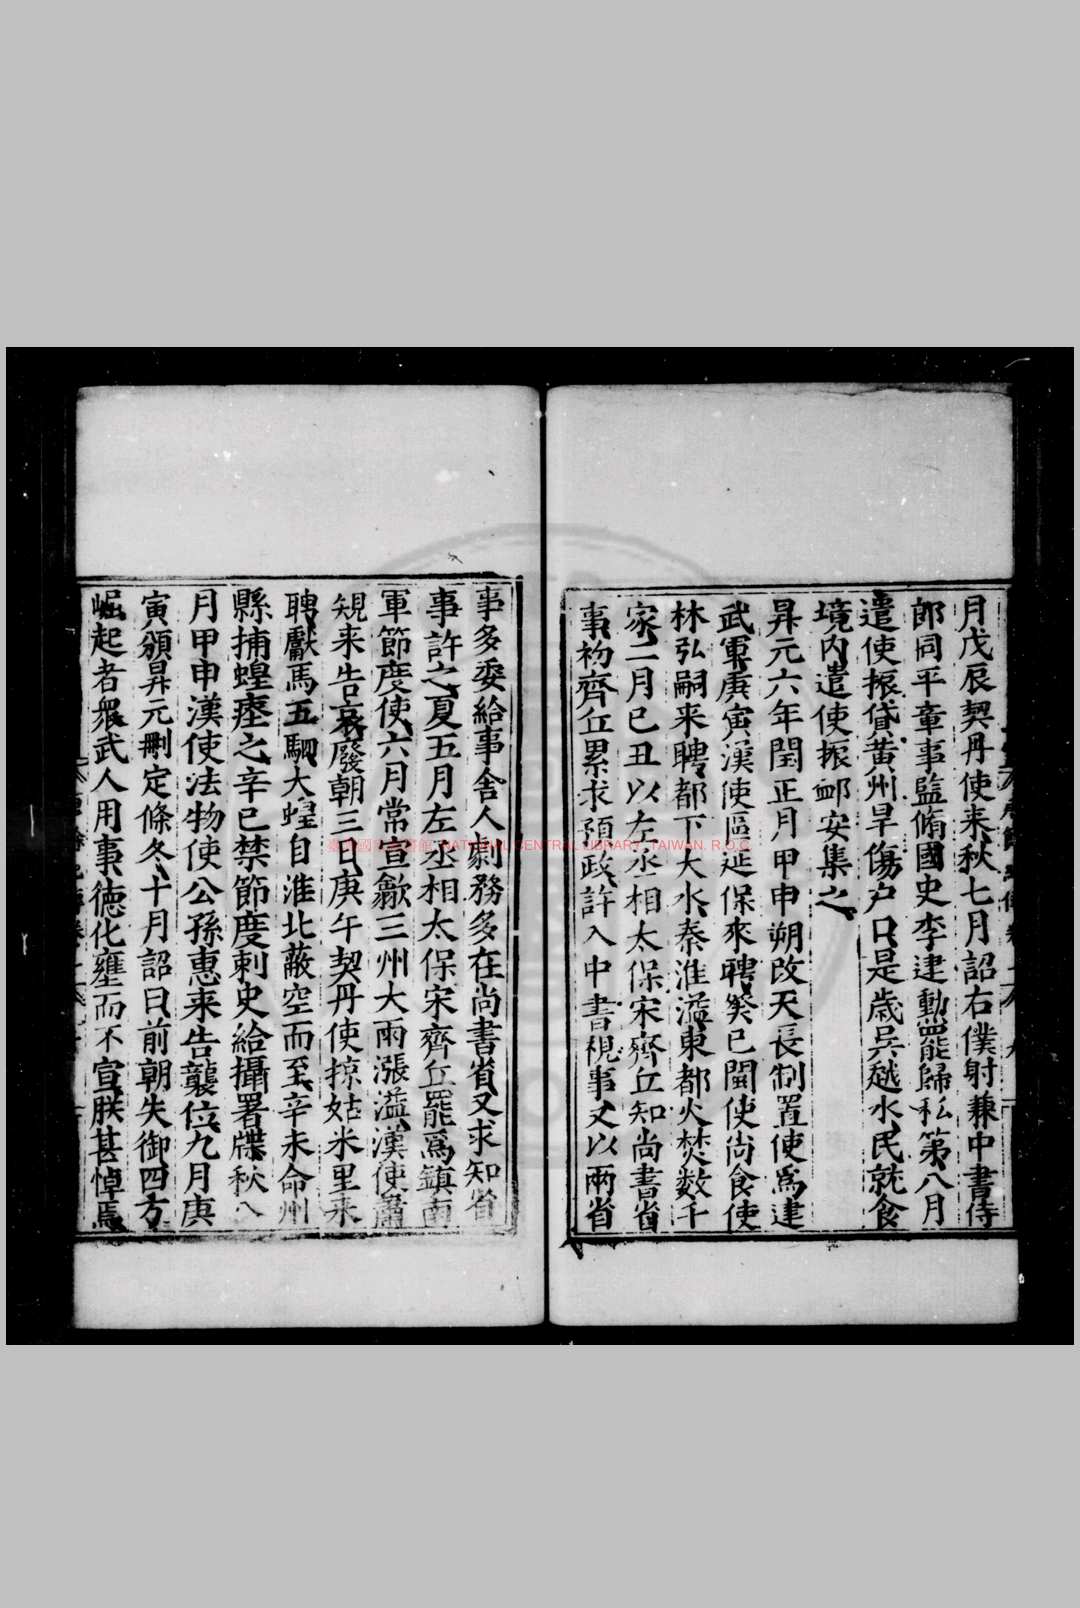 月戊辰契丹使来秋七月詔右僕射兼中書侍
郎同平章事監脩國史李建勳罷歸私第八月
遣使振貸黃州旱傷户口是歲吳越水民就食
境内遣使振卹安集之
昇元六年閏正月甲申朔改天長制置使爲建
武軍庚寅漢使區延保來聘癸巳閩使尚食使
林弘嗣来聘都下大水秦淮溢東都火焚数千
家二月己丑以左丞相太保宋齊丘知尚書省
事初齊丘累求預政許入中書視事又以兩省
事多委給事舍人劇務多在尚書省又求知省
事許之夏五月左丞相太保宋齊丘罷爲鎮南
軍節度使六月常宣歙三州大雨漲溢漢使蕭
規来告哀廢朝三日庚午契丹使掠姑米里来
聘獻馬五駟大蝗自淮北蔽空而至辛未命州
縣捕蝗瘞之辛巳禁節度刺史給攝署牒秋八
月甲申漢使法物使公孫惠来告襲位九月庚
寅頒昇元刪定條冬十月詔曰前朝失御四方
崛起者衆武人用事德化壅而不宣朕甚悼焉
臺灣國家圖書館, NATIONAL CENTRAL LIBRARY, TAIWAN, R.O.C.